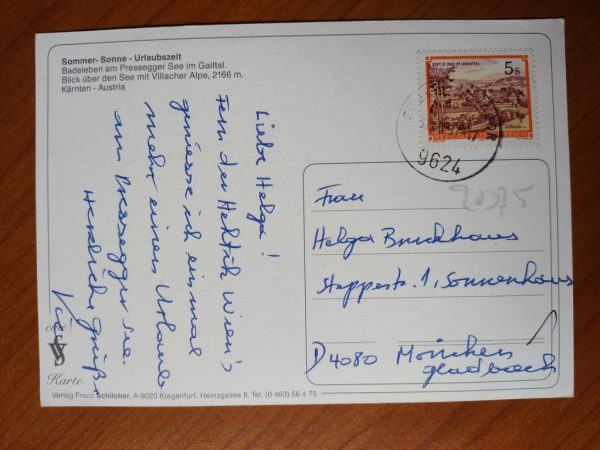 Sommer- Sonne - Urlaubszeit
Badeleben am Pressegger See im Gailtal.
Blick über den See mit Villacher Alpe, 2166 m.
Kärnten - Austria
Liebe Helga!
Fern der Hektik Wien's
geniesse ich einmal
mehr einen Urlaub
am Pressegger See.
Herzliche Grüße
eine
Karte
Verlag Franz Schilcher, A-9020 Klagenfurt, Heinzgasse 8, Tel. (0 463) 56 4 75
STIFT ST. PAUL IM LAVANTTAL
5s
REPUBLIK ÖSTERREICH
9624
Frau
Helga Bruckhaus
Steppestr. 1, Sonnenhaus
D 4080 Mönchen
gladbach